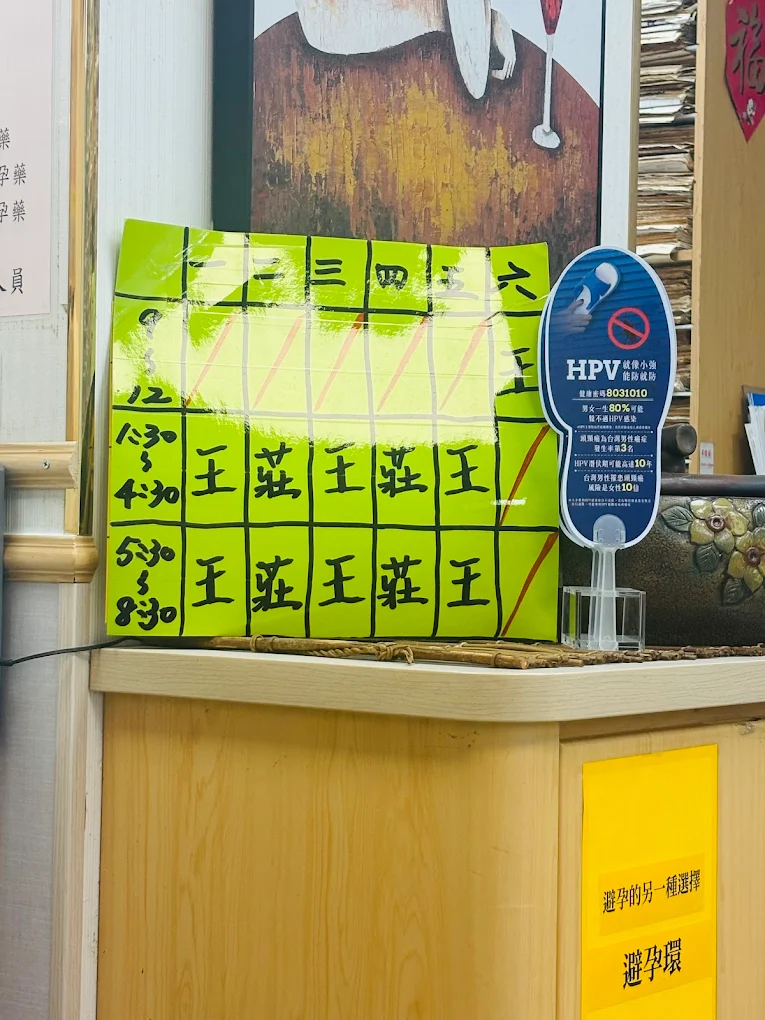 藥
孕藥
孕藥
人員
福
一 二 三 四 五 六
9
~
12 王
1:30
~
4:30 王 莊 王 莊 王
5:30
~
8:30 王 莊 王 莊 王
HPV 就像小強
能防就防
健康密碼8031010
男女一生80%可能
躲不過HPV感染
頭頸癌為台灣男性癌症
發生率第3名
HPV潛伏期可能高達10年
台灣男性罹患頭頸癌
風險是女性10倍
避孕的另一種選擇
避孕環